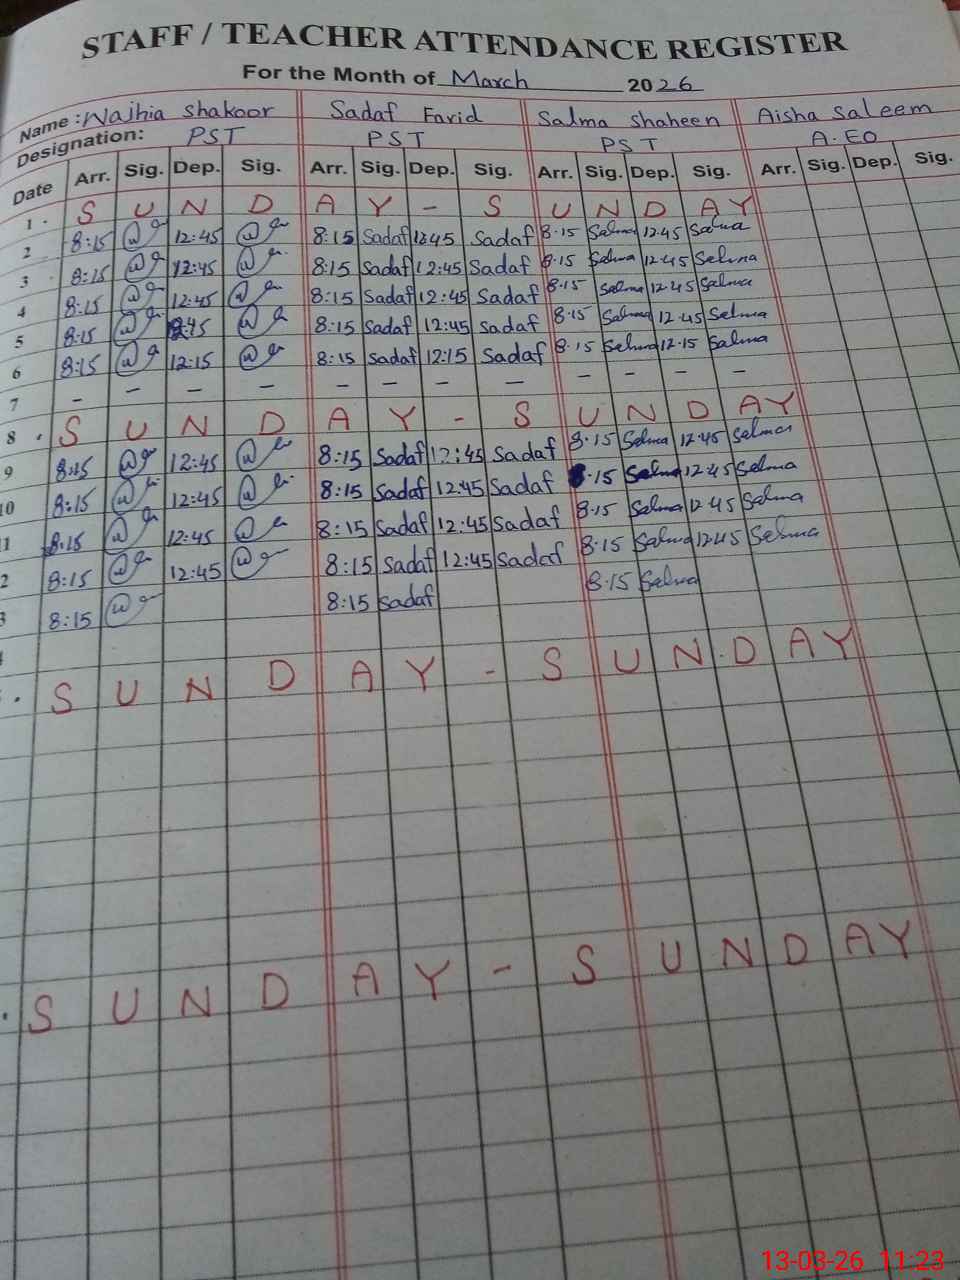 STAFF / TEACHER ATTENDANCE REGISTER
For the Month of March 2026
Name: Wajhia Shakoor Sadaf Farid Salma Shaheen Aisha Saleem
Designation: PST PST PST A.EO
Date Arr. Sig. Dep. Sig. Arr. Sig. Dep. Sig. Arr. Sig. Dep. Sig. Arr. Sig. Dep. Sig.
1 . S U N D A Y - S U N D A Y
2 8:15 12:45 8:15 Sadaf 12:45 Sadaf 8.15 Salma 12.45 Salma
3 8:15 12:45 8:15 Sadaf 12:45 Sadaf 8.15 Salma 12.45 Salma
4 8:15 12:45 8:15 Sadaf 12:45 Sadaf 8.15 Salma 12.45 Salma
5 8:15 8:15 Sadaf 12:45 Sadaf 8.15 Salma 12.45 Salma
6 8:15 12:15 8:15 Sadaf 12:15 Sadaf 8.15 Salma 12.15 Salma
7 - - - - - - - - - - - -
8 . S U N D A Y - S U N D A Y
9 8:15 12:45 8:15 Sadaf 12:45 Sadaf 8.15 Salma 12.45 Salma
10 8:15 12:45 8:15 Sadaf 12:45 Sadaf 8.15 Salma 12.45 Salma
11 8:15 12:45 8:15 Sadaf 12:45 Sadaf 8.15 Salma 12.45 Salma
2 8:15 12:45 8:15 Sadaf 12:45 Sadaf 8.15 Salma 12.45 Salma
3 8:15 8:15 Sadaf 8.15 Salma
. S U N D A Y - S U N D A Y
. S U N D A Y - S U N D A Y
13-03-26 11:23